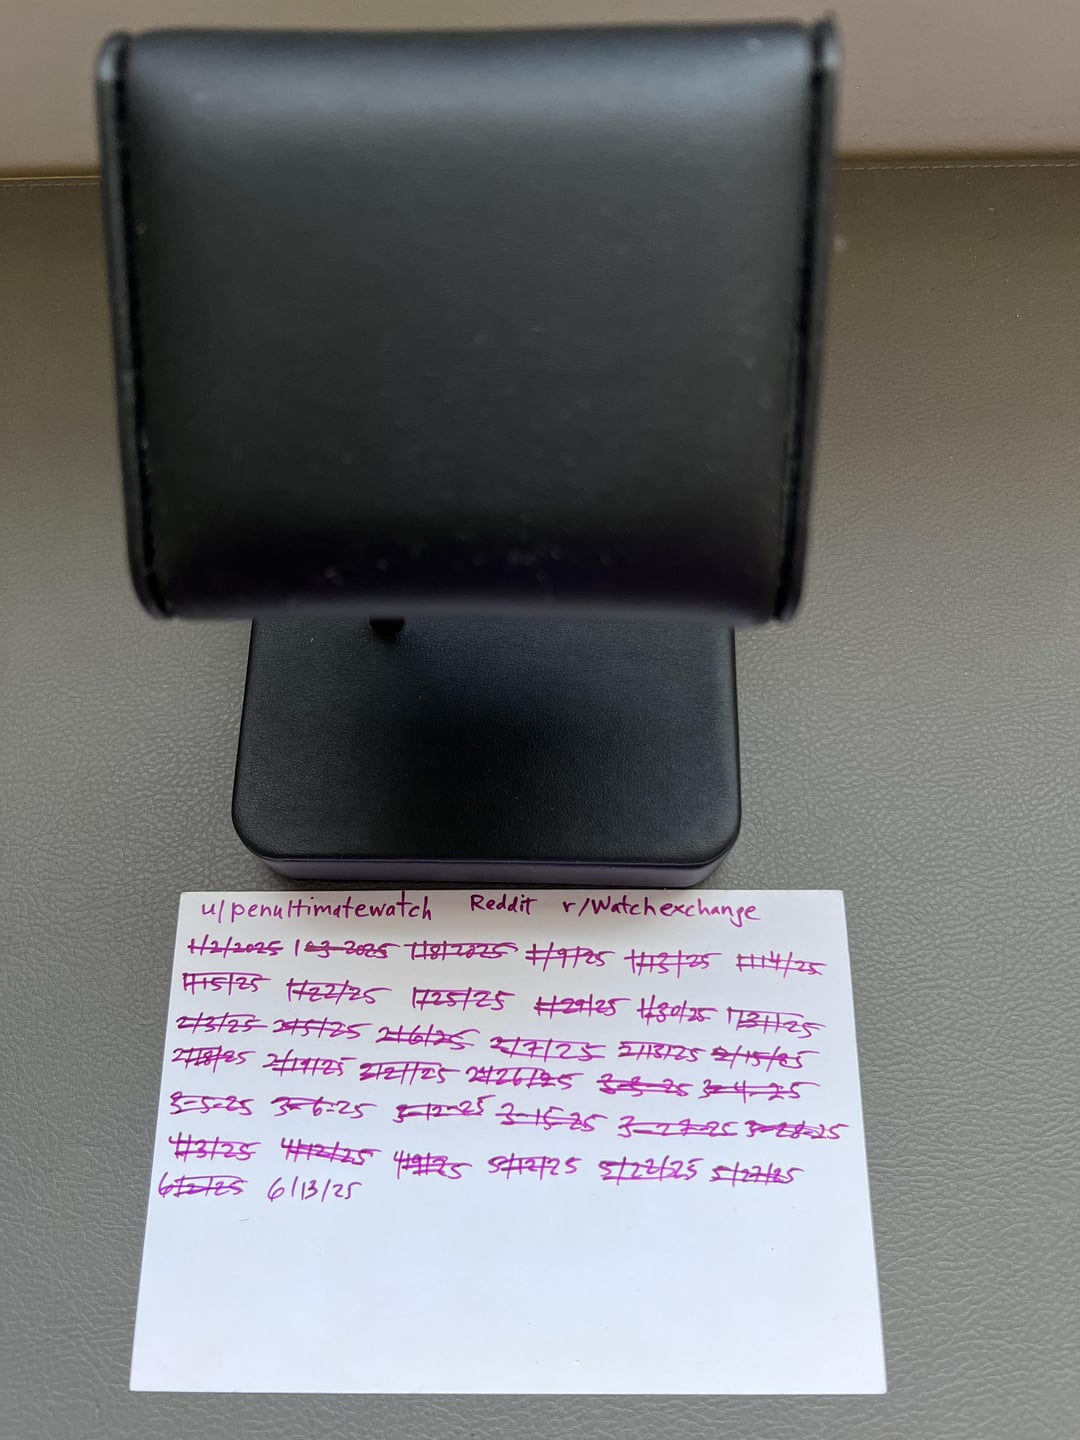 u/penultimatewatch Reddit r/Watchexchange
1/2/2025 1-3-2025 1/8/2025 1/9/25 1/13/25 1/14/25
1/15/25 1/22/25 1/25/25 1/29/25 1/30/25 1/31/25
2/3/25 2/5/25 2/6/25 2/7/25 2/13/25 2/15/25
2/18/25 2/19/25 2/21/25 2/26/25 3-3-25 3-4-25
3-5-25 3-6-25 3-12-25 3-15-25 3-27-25 3-28-25
4/3/25 4/12/25 5/12/25 5/22/25 5/27/25
6/2/25 6/13/25